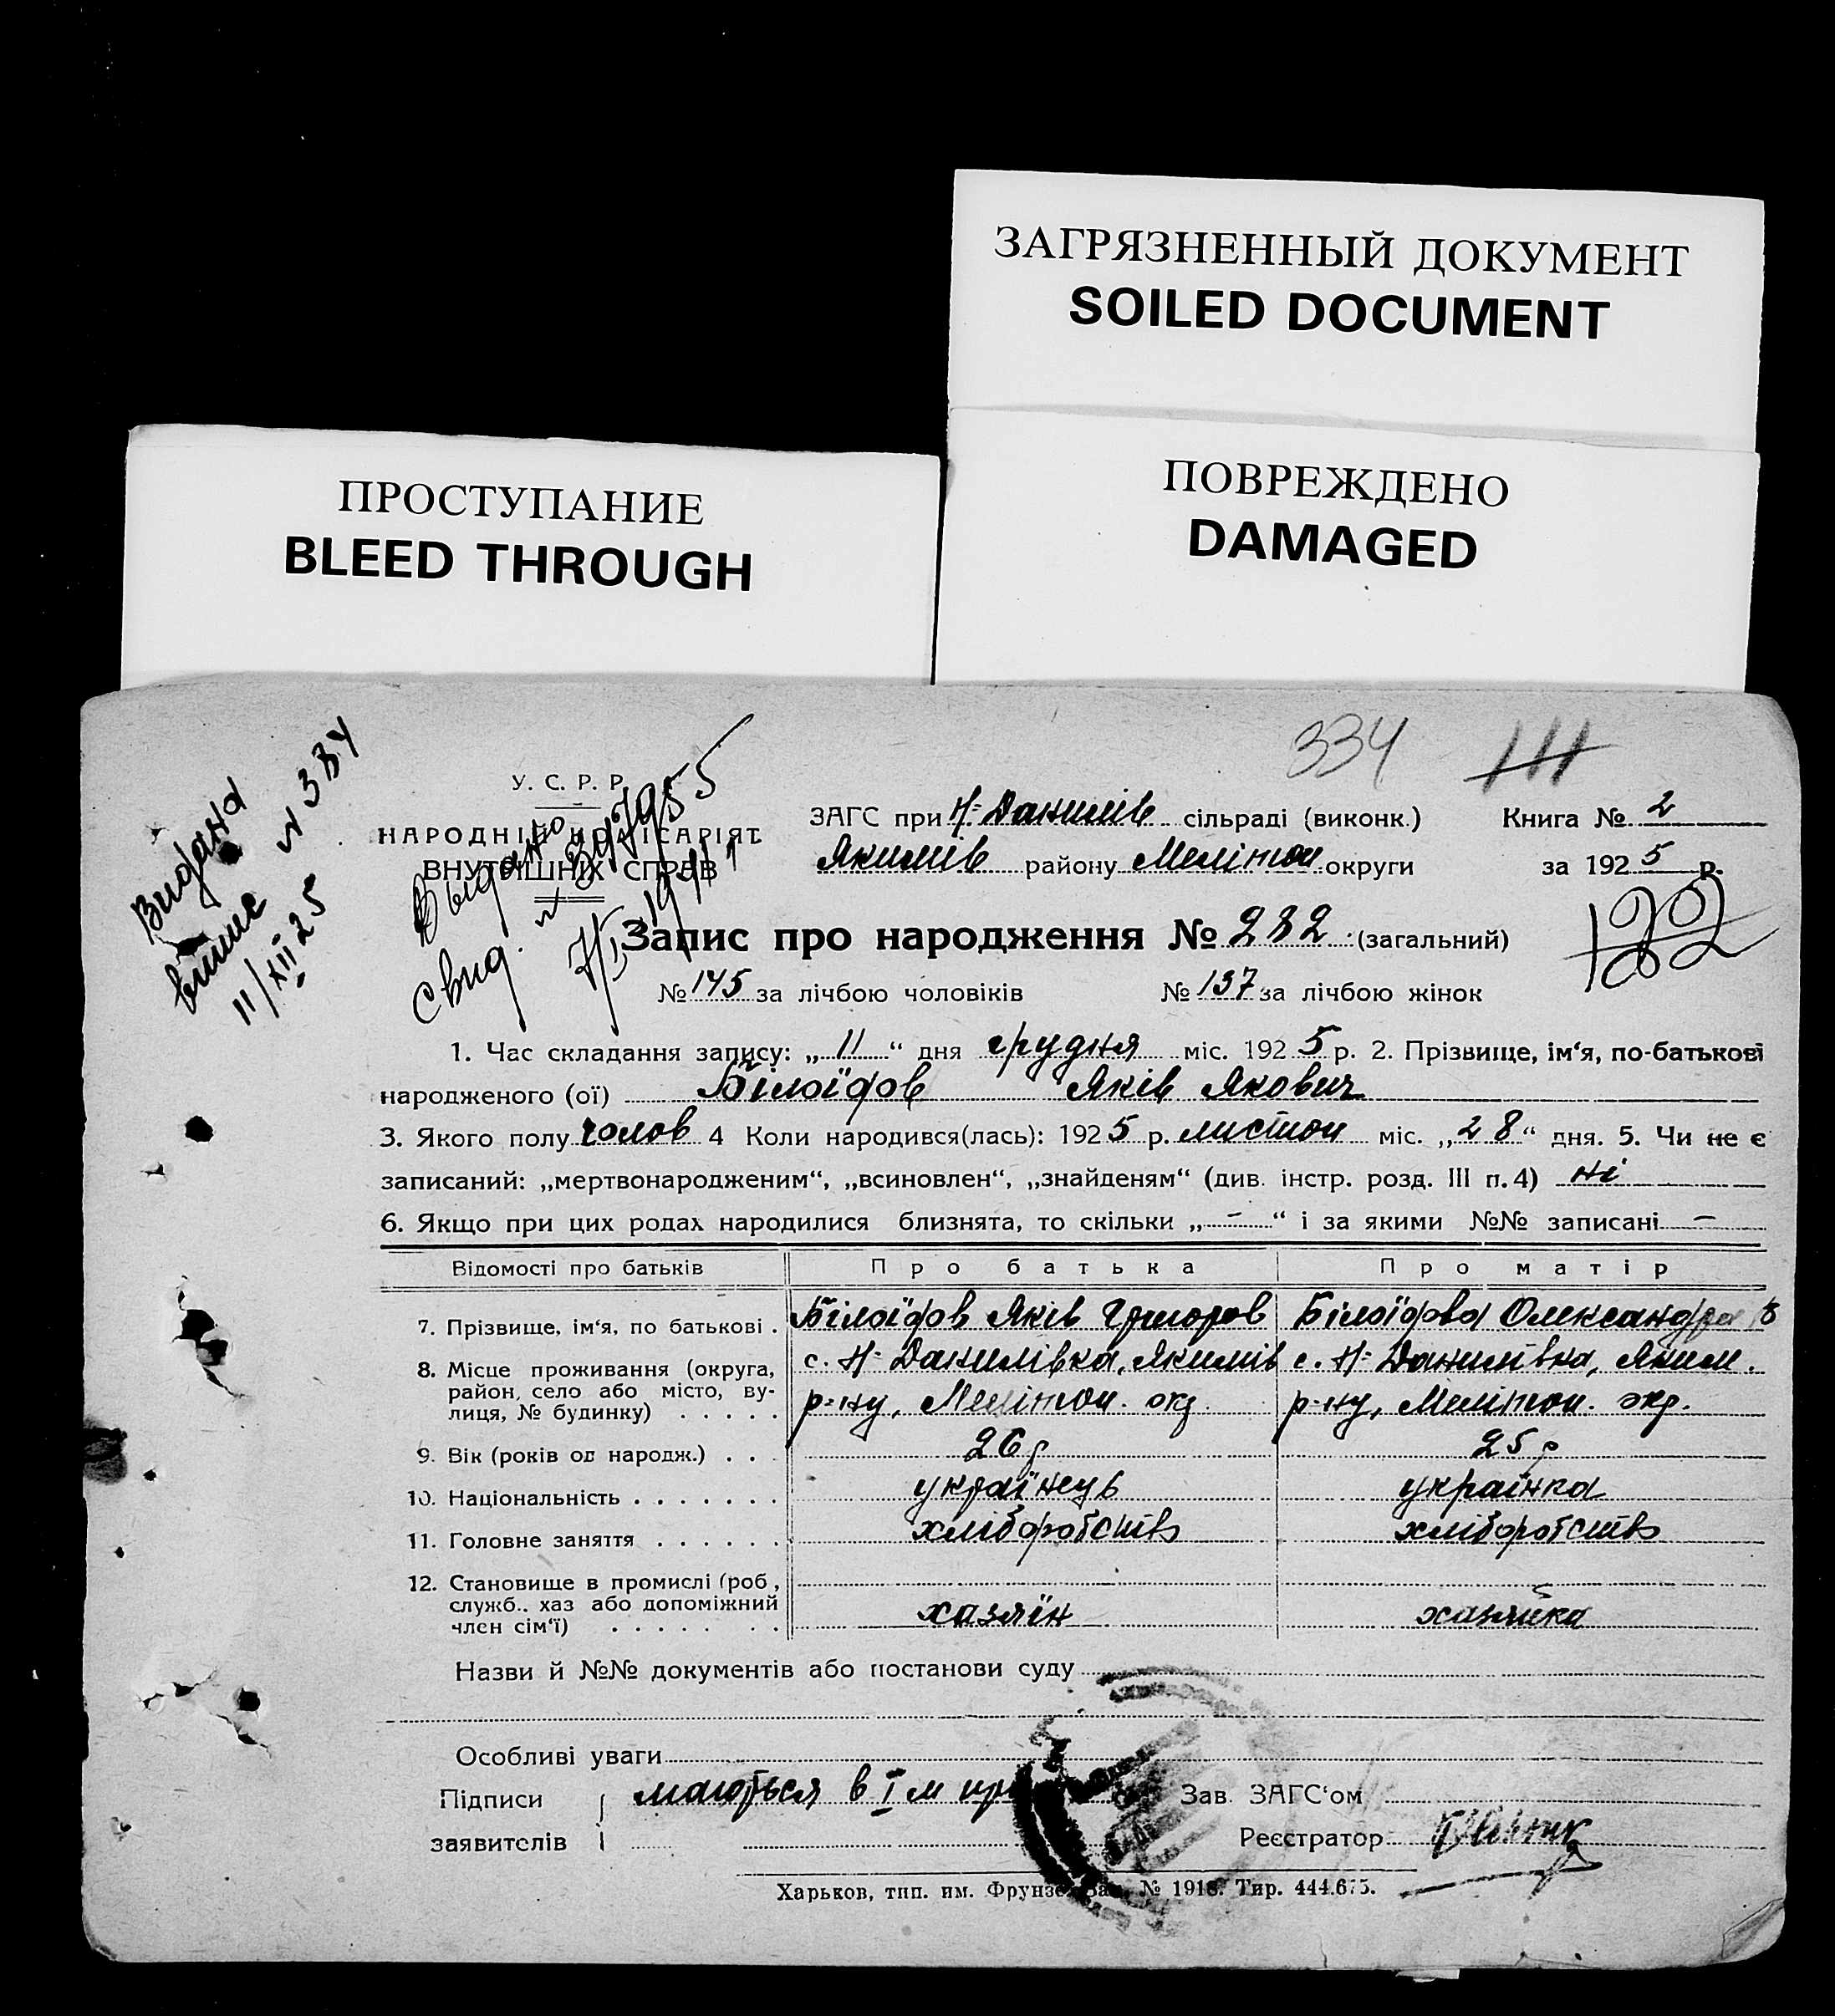 ЗАГРЯЗНЕННЫЙ ДОКУМЕНТ
SOILED DOCUMENT
ПРОСТУПАНИЕ
BLEED THROUGH
ПОВРЕЖДЕНО
DAMAGED
334 111
Видана
виписка
№ 384
11/XII 25
У. С. Р. Р.
НАРОДНІЙ КОМІСАРІЯТ
ВНУТРІШНІХ СПРАВ
Выдано
свид. №
1941
ЗАГС при Н-Данилів сільраді (виконк.) Книга № 2
Якимів району Мелітоп округи за 1925 р.
122
Запис про народження № 282 (загальний)
№ 145 за лічбою чоловіків № 137 за лічбою жінок
1. Час складання запису: „11“ дня грудня міс. 1925 р. 2. Прізвище, ім‘я, по-батькові
народженого (ої) Білоїдов Яків Якович
3. Якого полу чолов 4 Коли народився(лась): 1925 р. листоп міс. „28“ дня. 5. Чи не є
записаний: „мертвонародженим“, „всиновлен“, „знайденям“ (див. інстр. розд. III п. 4) ні
6. Якщо при цих родах народилися близнята, то скільки „-“ і за якими №№ записані -
Відомості про батьків Про батька Про матір
7. Прізвище, ім‘я, по батькові . Білоїдов Яків Григоров Білоїдова Олександра
8. Місце проживання (округа, с. Н-Данилівка, Якимів с. Н-Данилівка, Яким.
район, село або місто, ву-
лиця, № будинку) . . . . . р-ну, Мелітоп. окр. р-ну, Мелітоп. окр.
9. Вік (років од народж.) . . . 26 р 25 р
10. Національність . . . . . . . українець українка
11. Головне заняття . . . . . . хліборобств хліборобств
12. Становище в промислі (роб.,
служб., хаз або допоміжний
член сім‘ї) . . . . . . . хазяїн хазяйка
Назви й №№ документів або постанови суду
Особливі уваги
Підписи маються в І м
заявителів
Зав. ЗАГС‘ом
Реєстратор
Харьков, тип. им. Фрунзе. Зак. № 1918. Тир. 444.675.